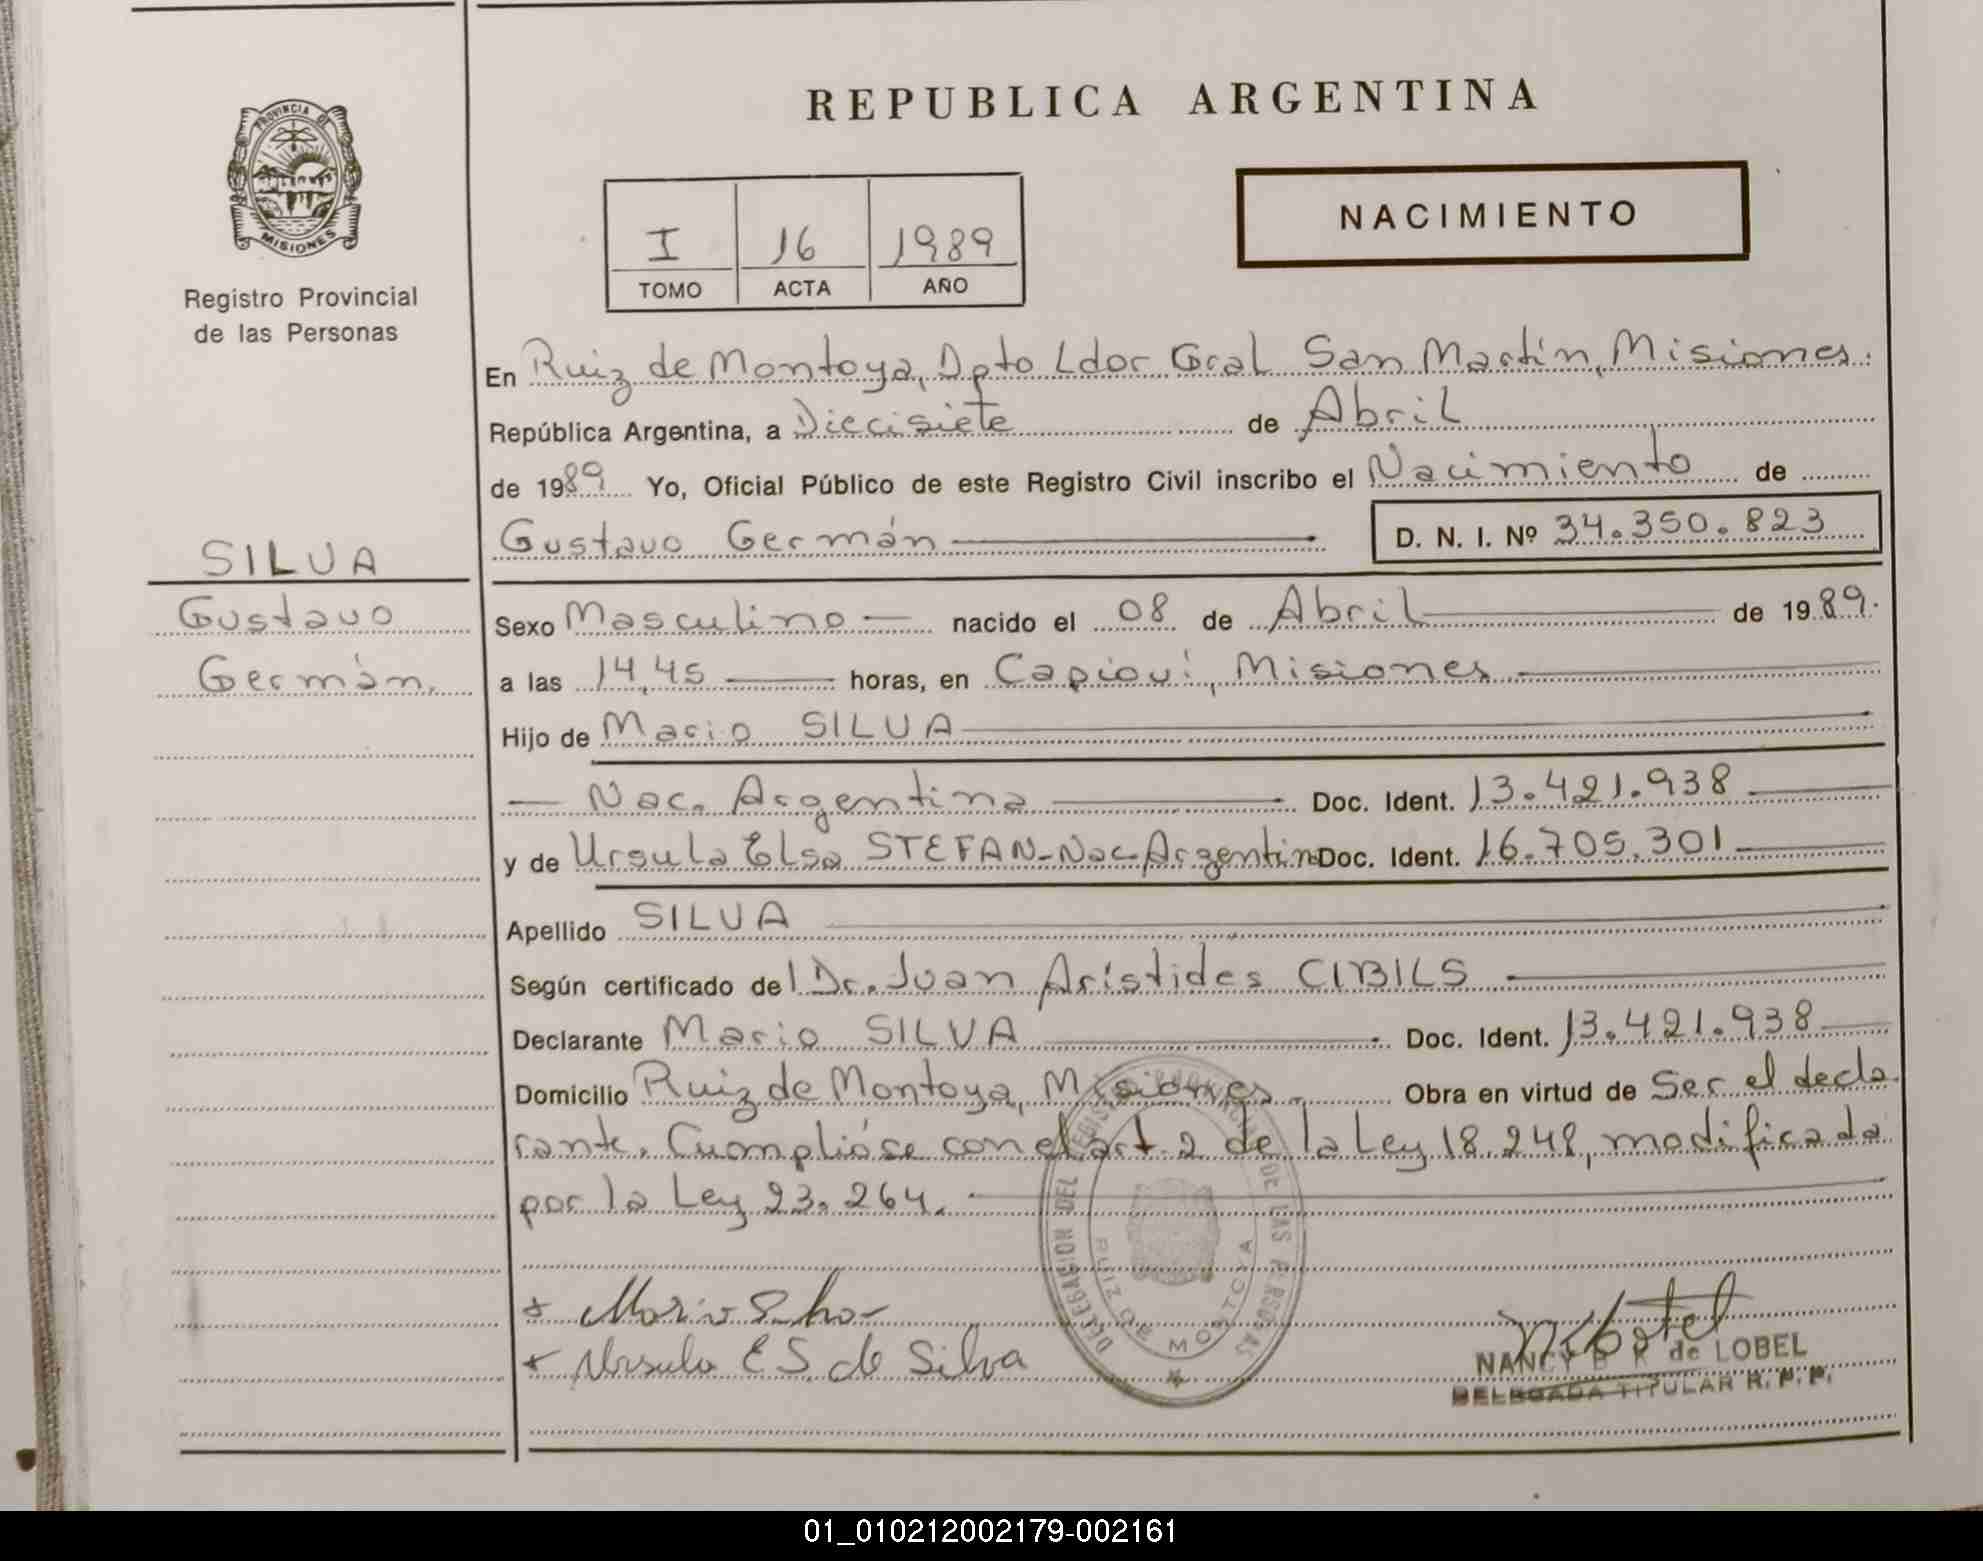 REPUBLICA ARGENTINA
PROVINCIA DE
MISIONES
Registro Provincial
de las Personas
I 16 1989
TOMO ACTA AÑO
NACIMIENTO
En Ruiz de Montoya, Dpto Ldor Gral San Martín, Misiones.
República Argentina, a Diecisiete de Abril
de 1989 Yo, Oficial Público de este Registro Civil inscribo el Nacimiento de
Gustavo Germán D. N. I. Nº 34.350.823
SILVA
Gustavo
Germán.
Sexo Masculino nacido el 08 de Abril de 1989.
a las 14,45 horas, en Capioví, Misiones
Hijo de Mario SILVA
Nac. Argentina Doc. Ident. 13.421.938
y de Ursula Elsa STEFAN-Nac-Argentina Doc. Ident. 16.705.301
Apellido SILVA
Según certificado del Dr. Juan Arístides CIBILS
Declarante Mario SILVA Doc. Ident. 13.421.938
Domicilio Ruiz de Montoya, Misiones. Obra en virtud de Ser el decla
rante. Cumplióse con el art. 2 de la Ley 18.248, modificada
por la Ley 23.264.
DELEGACION DEL REGISTRO PROVINCIAL DE LAS PERSONAS
RUIZ DE MONTOYA
+ Mario Silva
+ Ursula E S. de Silva
NANCY B R de LOBEL
DELEGADA TITULAR R. P. P.
01_010212002179-002161